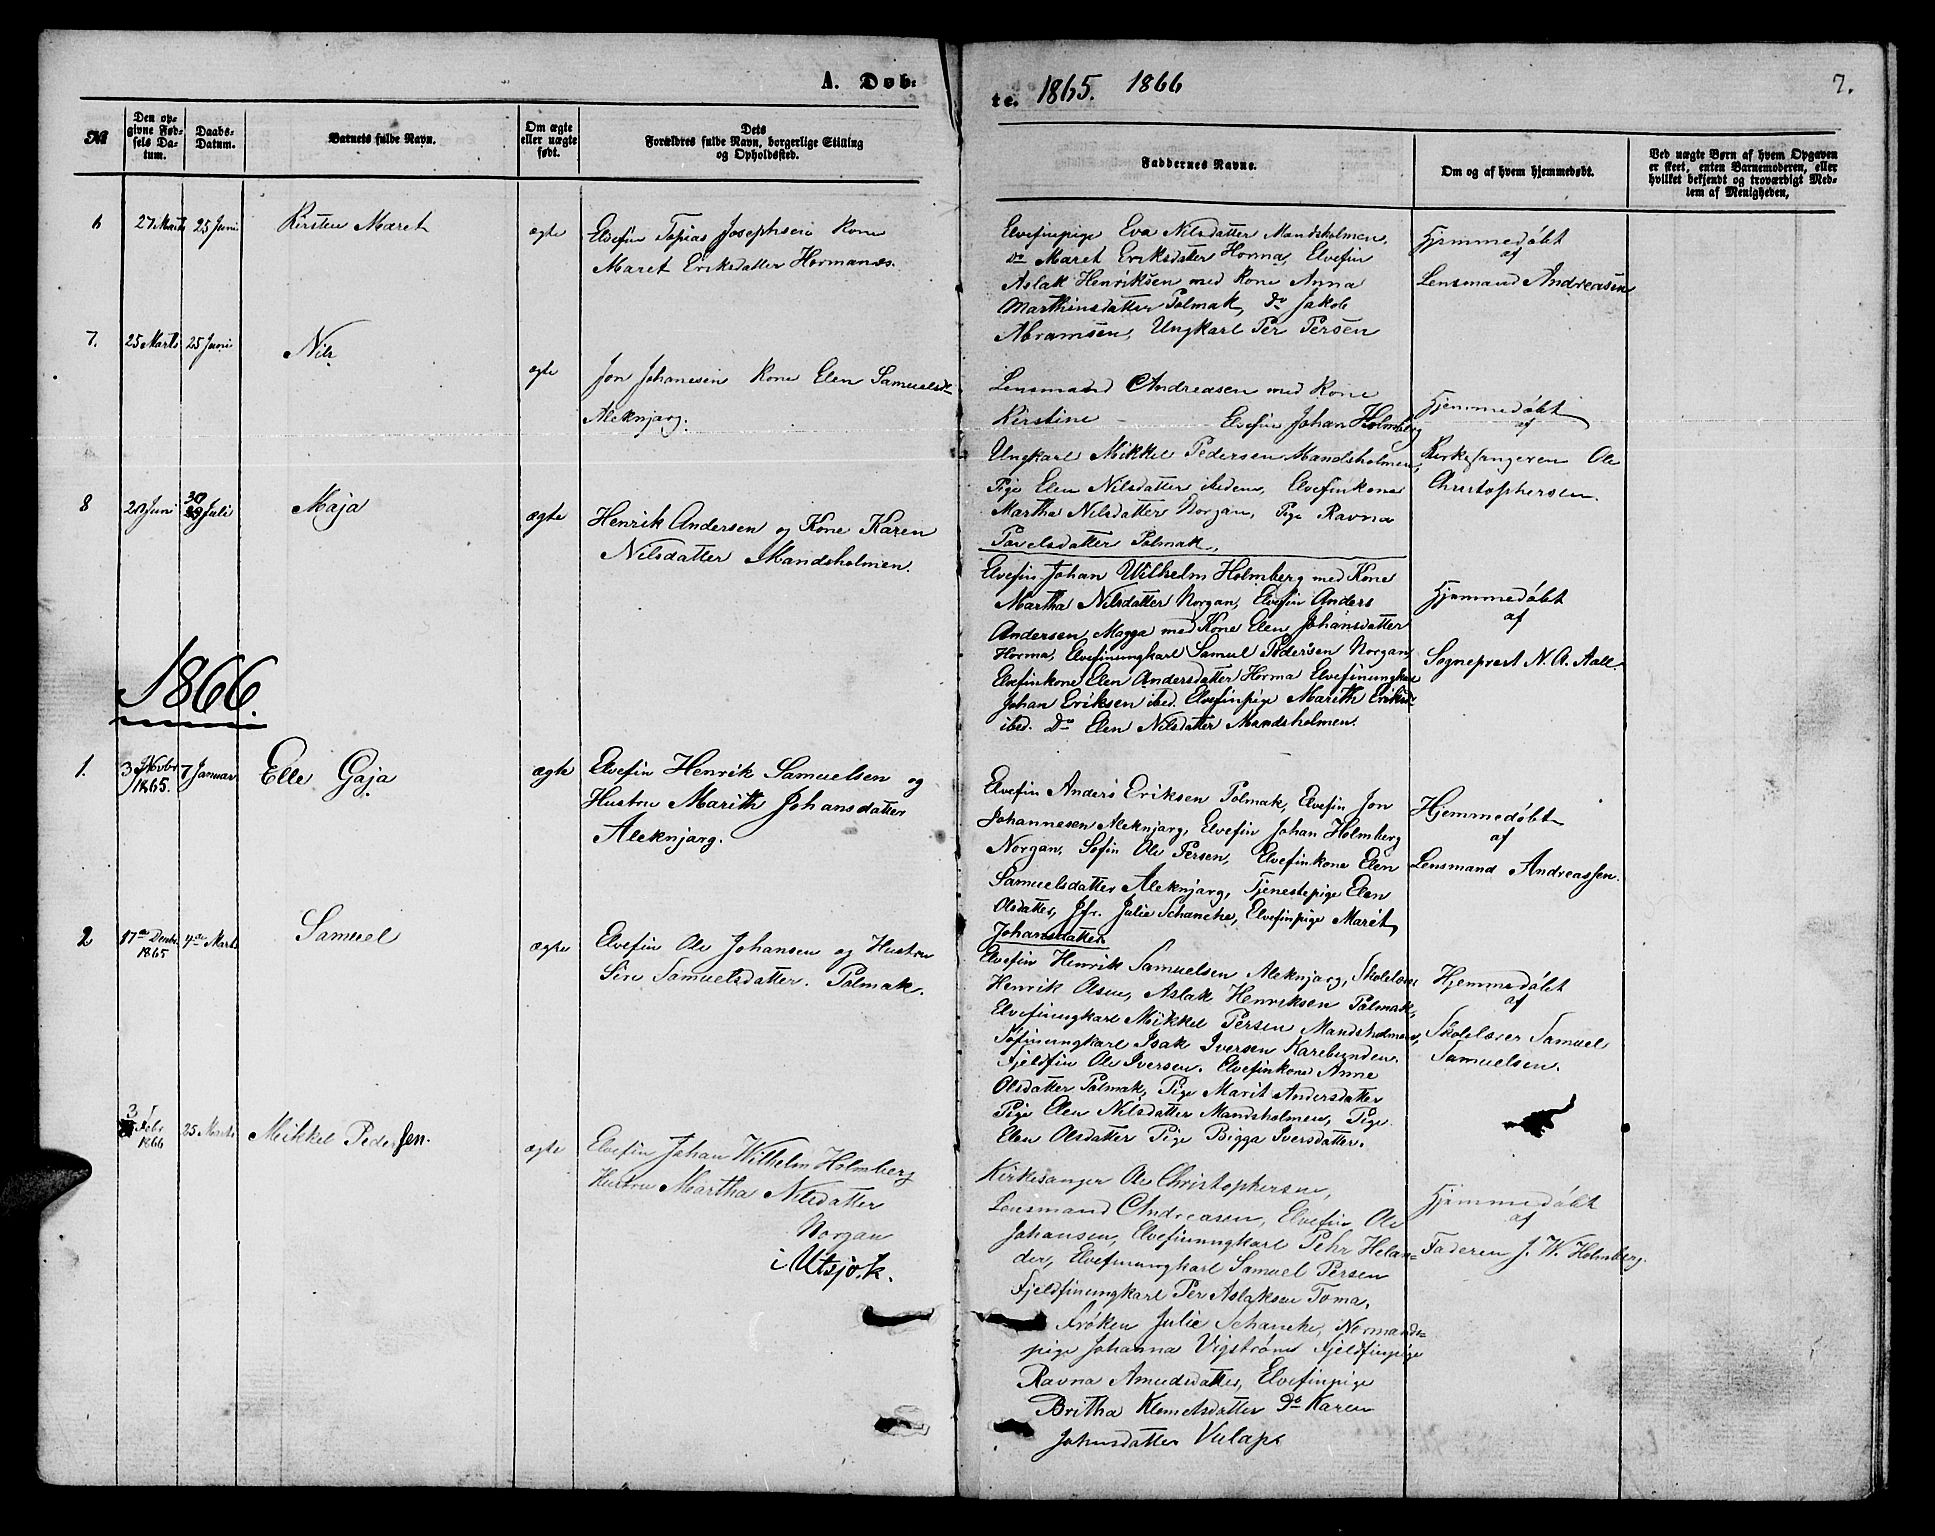 A. Døb-
te. 1865. 1866
7.
№
Den op-
givne Fød-
sels Da-
tum.
Daabs-
Datum.
Barnets fulde Navn.
Om ægte
eller uægte
født.
Dets
Forældres fulde Navn, borgerlige Stilling
og Opholdssted.
Faddernes Navne.
Om og af hvem hjemmedøbt.
Ved uægte Børn af hvem Opgaven
er skeet, enten Barnemoderen, eller
hvilket bekjendt og troværdigt Med-
lem af Menigheden.
6
27 Marts
25 Juni
Kirsten Maret
ægte
Elvefin Tobias Josephsen Kone
Maret Eriksdatter Hormanæs.
Elvefinpige Eva Nilsdatter Mandsholmen,
Do Maret Eriksdatter Horma, Elvefin
Aslak Henriksen med Kone Anna
Marthinsdatter Polmak, Do Jakob
Abramsen, Ungkarl Per Persen
Hjemmedøbt
af
Lensmand Andreasen
7.
25 Marts
25 Juni
Nils
ægte
Jon Johanesen Kone Elen Samuelsd
Aleknjarg.
Lensmand Andreasen med Kone
Kirstine – Elvefin Johan Holmberg
Ungkarl Mikkel Pedersen Mandsholmen,
Pige Elen Nilsdatter ibidem, Elvefinkone
Martha Nilsdatter Norgan, Pige Ravna
Povelsdatter Polmak.
Hjemmedøbt
af
Kirkesangeren Ole
Christophersen.
8
20 Juni
30 Juli
Maja
ægte
Henrik Andersen og Kone Karen
Nilsdatter Mandsholmen.
Elvefin Johan Wilhelm Holmberg med Kone
Martha Nilsdatter Norgan, Elvefin Anders
Andersen Magga med Kone Elen Johansdatter
Horma, Elvefinungkarl Samuel Pedersen Norgan
Elvefinkone Elen Andersdatter Horma Elvefinungkarl
Johan Eriksen ibed. Elvefinpige Marith Eriksd
ibed. Do Elen Nilsdatter Mandsholmen.
Hjemmedøbt
af
Sogneprest N. A. Aall
1866.
1.
3 Novbr
1865.
7 Januar
Elle Gaja
ægte
Elvefin Henrik Samuelsen og
Hustru Marith Johansdatter
Aleknjarg.
Elvefin Anders Eriksen Polmak, Elvefin Jon
Johannesen Aleknjarg, Elvefin Johan Holmberg
Norgan, Søfin Ole Persen, Elvefinkone Elen
Samuelsdatter Aleknjarg, Tjenestepige Elen
Olsdatter, Jfr. Julie Schanche, Elvefinpige Marit
Johansdatter
Hjemmedøbt
af
Lensmand Andreassen.
2
17de Decbr.
1865
4de Marts
Samuel
ægte
Elvefin Ole Johansen og Hustru
Siri Samuelsdatter. Polmak.
Elvefin Henrik Samuelsen Aleknjarg, Skolelærer
Henrik Olsen, Aslak Henriksen Polmak,
Elvefinungkarl Mikkel Persen Mandsholmen,
Søfinungkarl Isak Iversen Karebunden.
Fjeldfin Ole Iversen. Elvefinkone Anne
Olsdatter Polmak, Pige Marit Andersdatter
Pige Elen Nilsdatter Mandsholmen, Pige
Elen Olsdatter Pige Bigga Iversdatter.
Hjemmedøbt
af
Skolelærer Samuel
Samuelsen.
3
Febr
1866
25 Marts
Mikkel Pedersen.
ægte
Elvefin Johan Wilhelm Holmberg
Hustru Martha Nilsdatter
Norgan
i Utsjok.
Kirkesanger Ole Christophersen,
Lensmand Andreasen, Elvefin Ole
Johansen, Elvefinungkarl Pehr Helan-
der, Elvefinungkarl Samuel Persen
Fjeldfinungkarl Per Aslaksen Toma,
Frøken Julie Schanche, Normands-
pige Johanna Vigstrøm Fjeldfinpige
Ravna Amundsdatter, Elvefinpige
Britha Klemetsdatter Do Karen
Johnsdatter Vulap.
Hjemmedøbt
af
Faderen J. W. Holmberg.